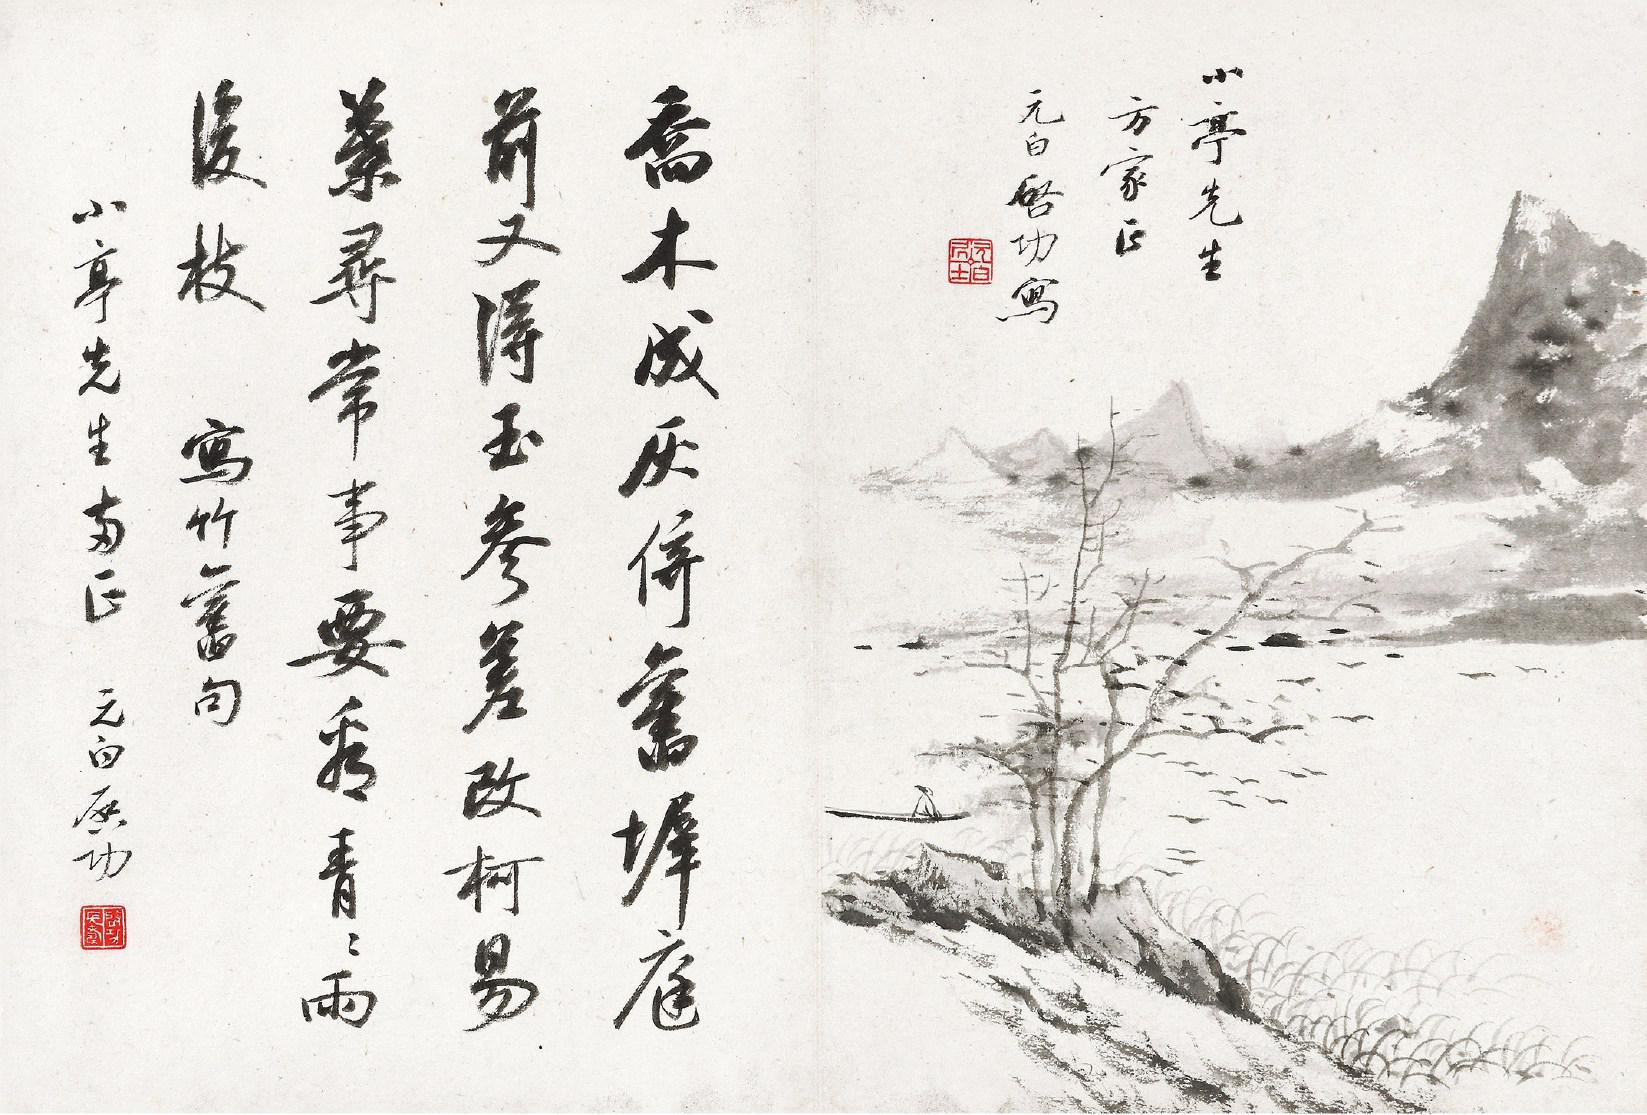 小亭先生
方家正
元白啓功寫
元白居士
喬木成灰倚舊墀庭
前又得玉參差改柯易
葉尋常事要看青青雨
後枝 寫竹舊句
小亭先生両正 元白启功